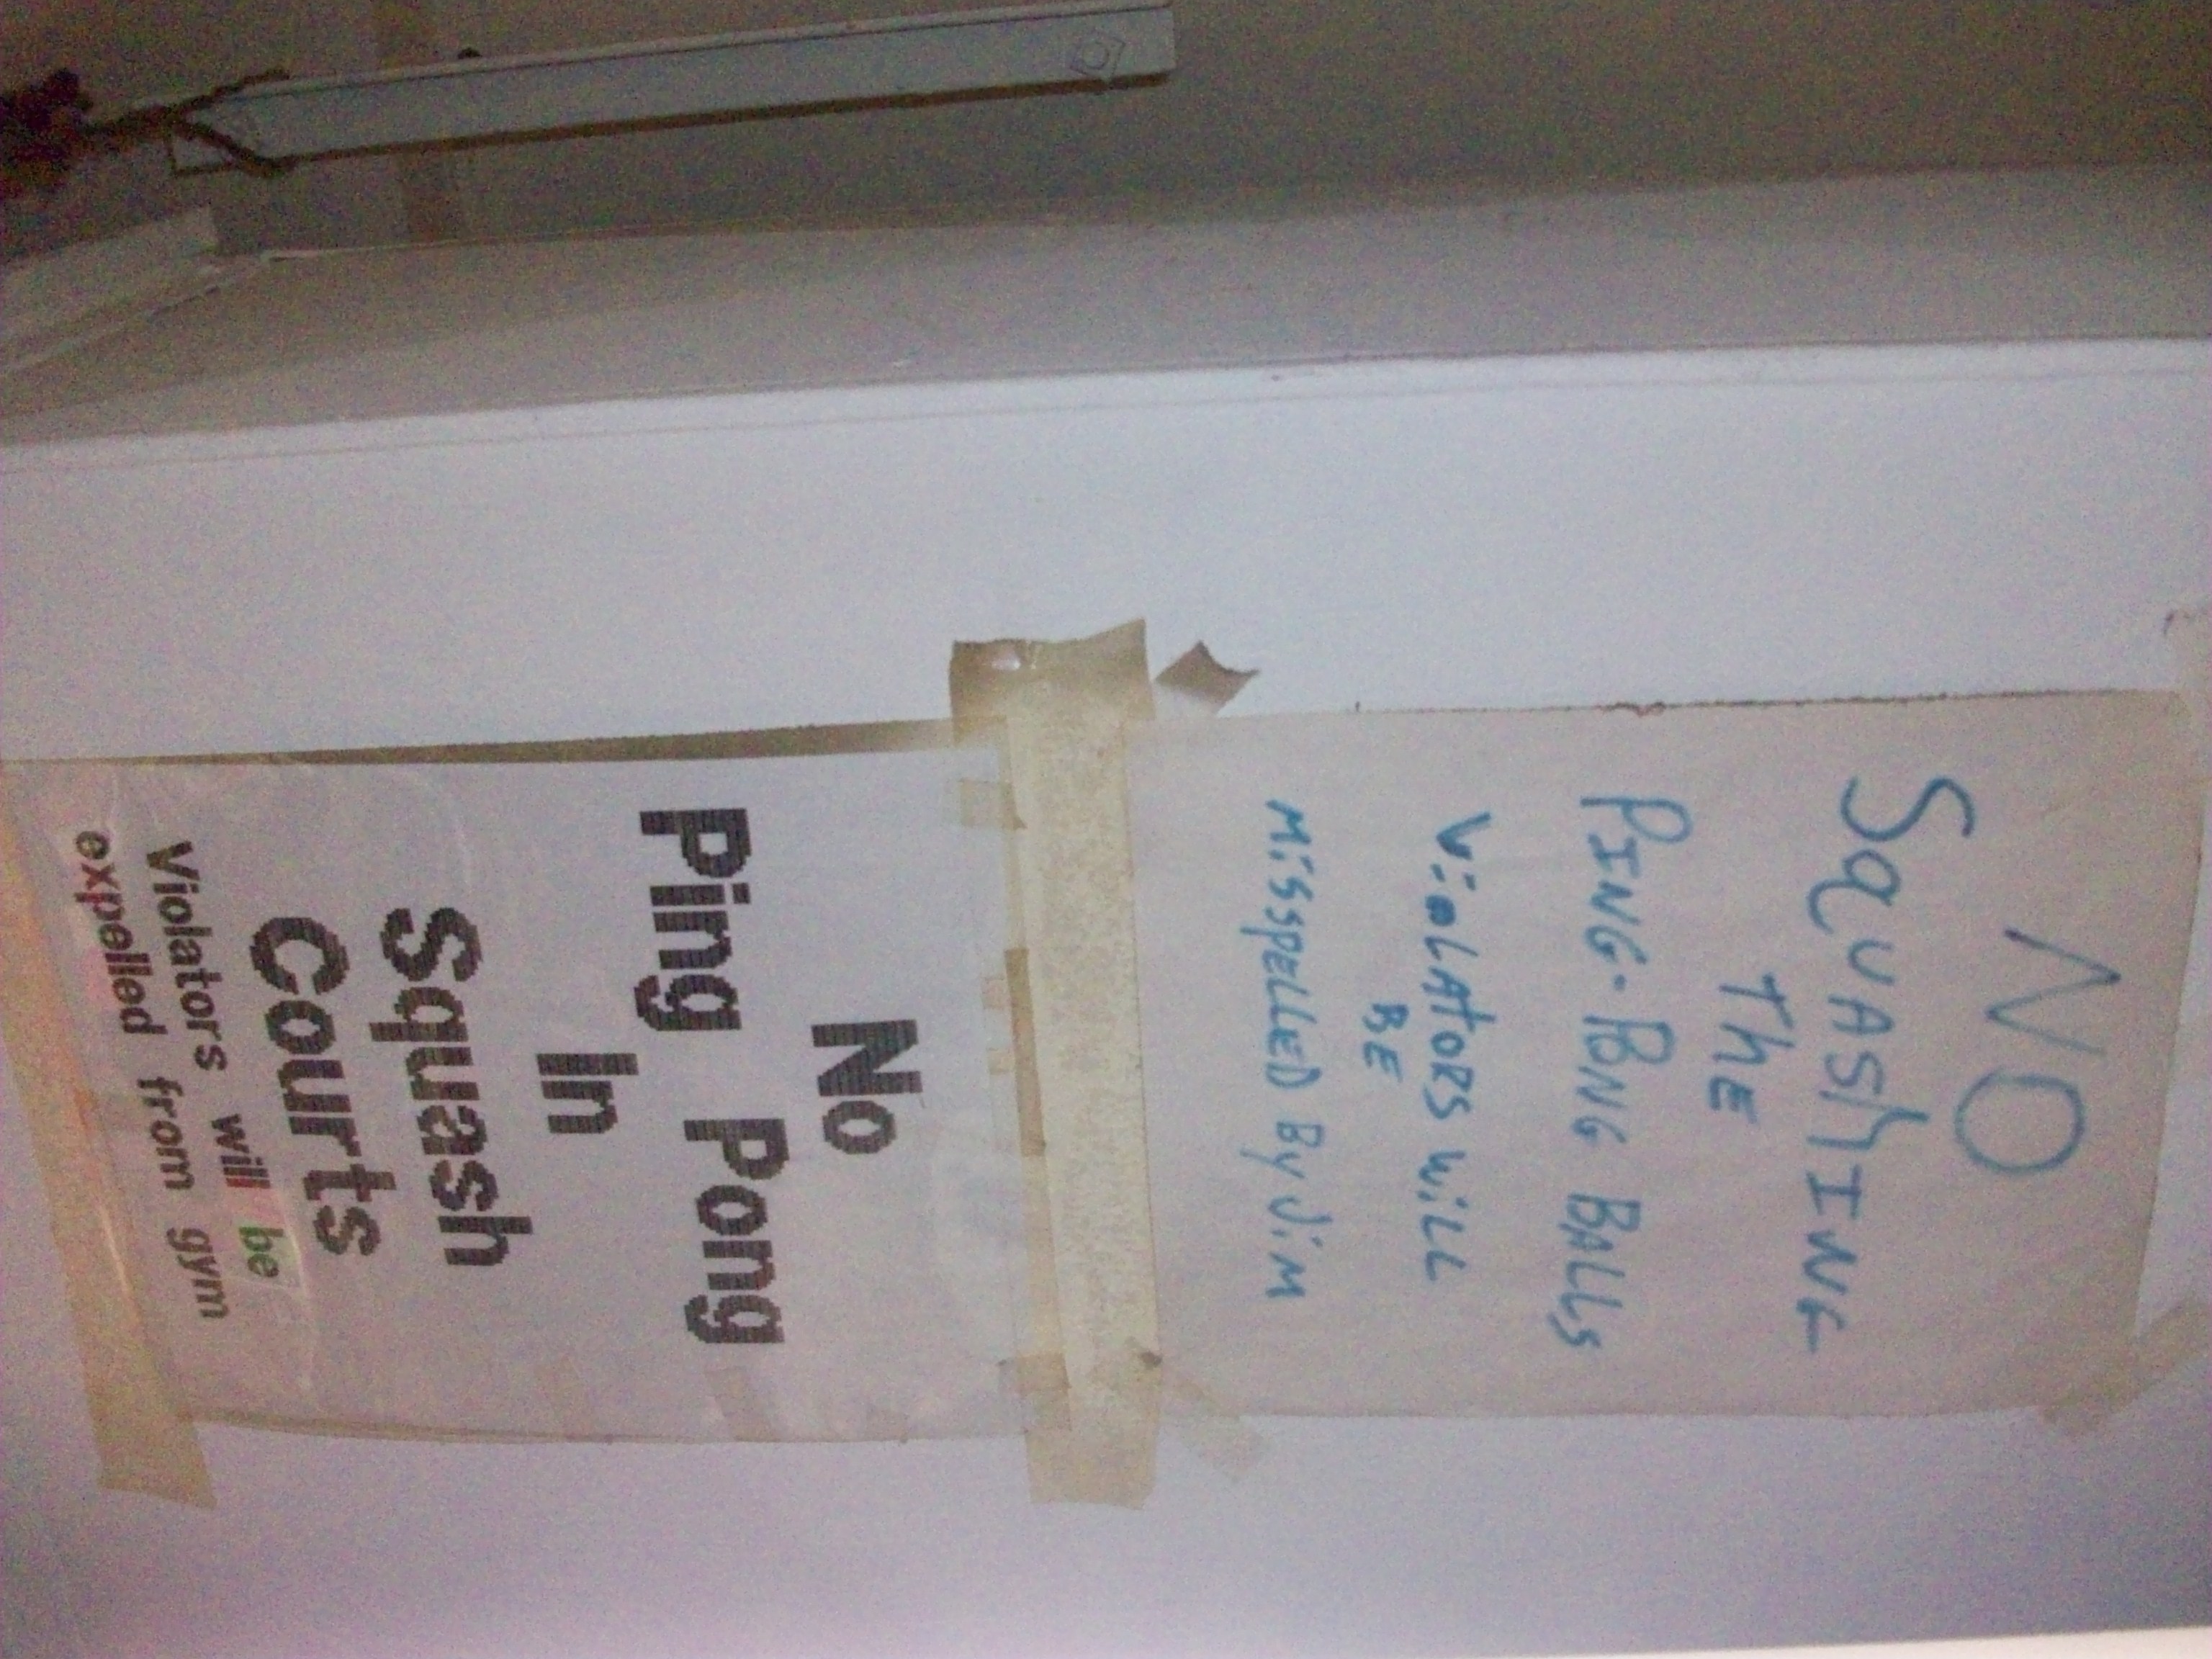 NO
SquAShING
ThE
PING-PONG BALLS
ViolAtoRS WiLL
BE
MiSSpELLED By JiM
No
Ping Pong
In
Squash
Courts
Violators will be
expelled from gym